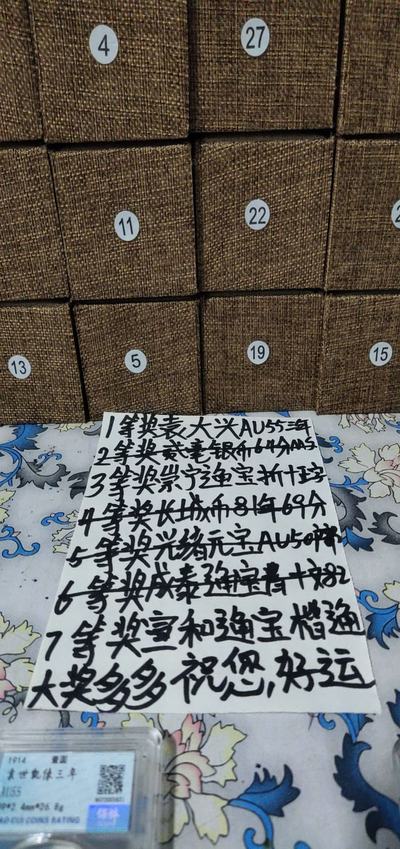 4
27
11
22
13
5
19
15
1等奖袁大头AU55三年
2等奖贰毫银币64分MS
3等奖崇宁通宝折十
4等奖长城币81年69分
5等奖光绪元宝AU50
6等奖咸泰通宝背十文82
7等奖宣和通宝楷通
大奖多多祝您,好运
1914 壹圆
袁世凯像三年
AU55
COINS RATING